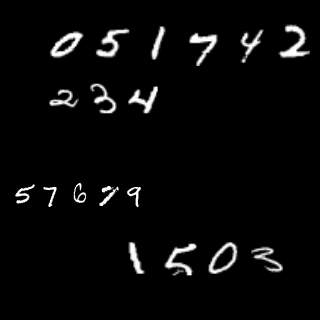 051742
234
57679
1503